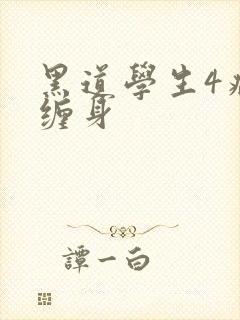 黑道學生4
缠身
譚一白